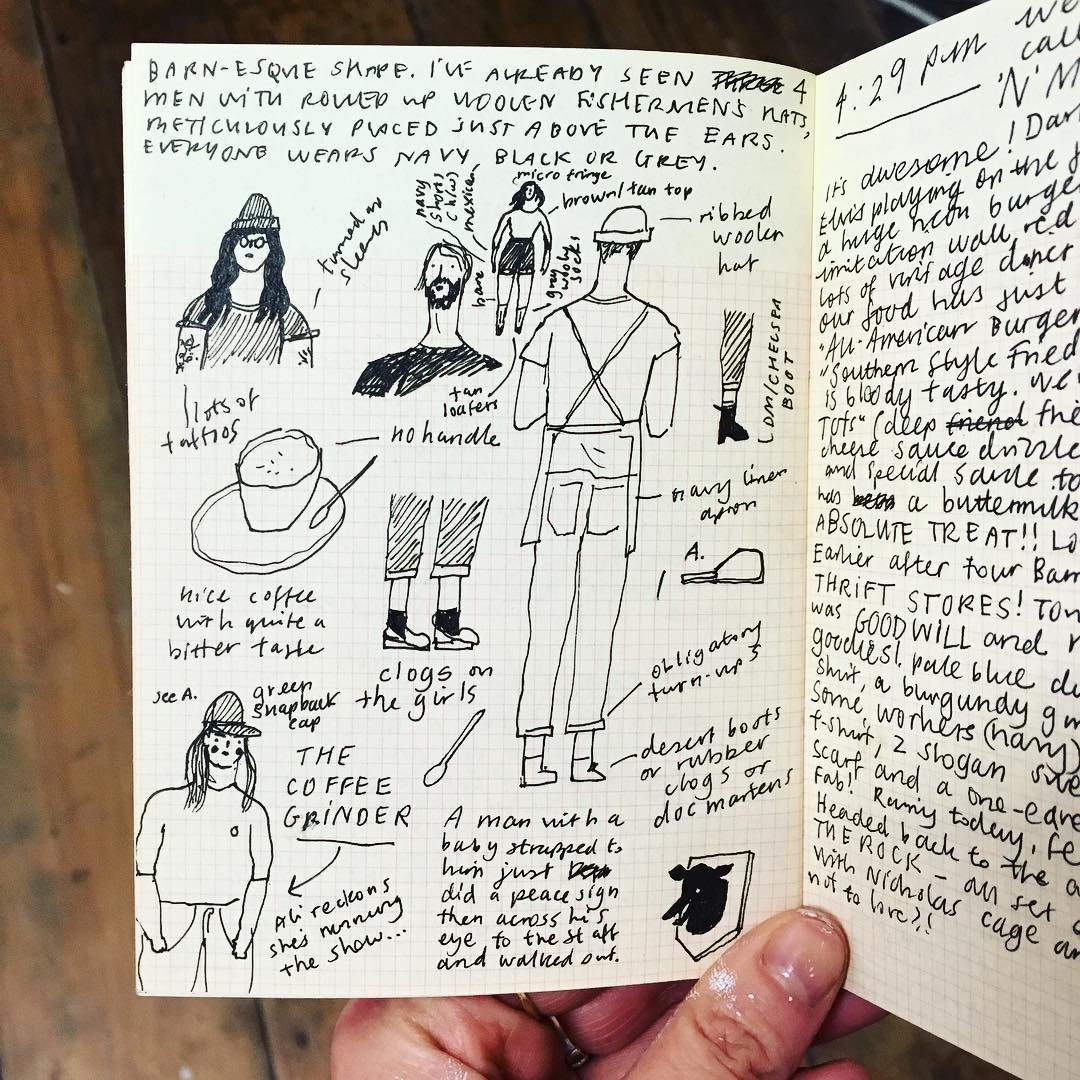 BARN-ESQUE SHAPE. I'VE ALREADY SEEN 4
MEN WITH ROLLED UP WOOLEN FISHERMEN'S HATS,
METICULOUSLY PLACED JUST ABOVE THE EARS.
EVERYONE WEARS NAVY, BLACK OR GREY.
micro fringe
brown/tan top
navy
shorts
mexican
bare
grey
wooly
socks
tan
loafers
turned up
sleeves
lots of
tattoos
ribbed
woolen
hat
DM/CHELSEA
BOOT
no handle
nice coffee
with quite a
bitter taste
clogs on
the girls
navy linen
apron
A.
obligatory
turn-ups
desert boots
or rubber
clogs or
doc martens
see A.
green
snapback
cap
THE
COFFEE
GRINDER
Ali reckons
she's running
the show...
A man with a
baby strapped to
him just
did a peace sign
then across his
eye to the staff
and walked out.
we
call
4:29 pm
'N' M
! Dar
It's awesome
Elvis playing on the
a huge neon burger
imitation wall, red
lots of vintage
our food has just
"All-American Burger
"Southern Style Fried
is bloody tasty. We
TOTS" (deep friend
cheese sauce drizzle
and special sauce to
has a buttermilk
ABSOLUTE TREAT!! Lo
Earlier after tour Bar
THRIFT STORES! TOW
was GOODWILL and
goodies! pale blue
shirt, a burgundy
some workers (navy)
t-shirt, 2 slogan swe
scarf and a one-eare
Fab! Rainy today, Fe
Headed back to the a
THE ROCK - an set
with Nicholas Cage an
not to love?!